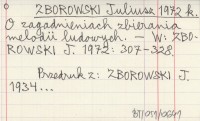 ZBOROWSKI Juliusz 1972 k.
O zagadnieniach zbierania
melodii ludowych. – W: ZBO-
ROWSKI J. 1972: 307-328.
Przedruk z: ZBOROWSKI J.
1934...